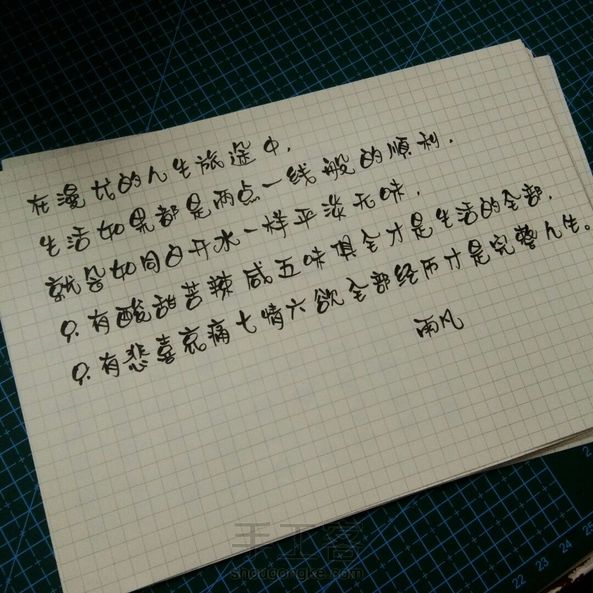 在漫长的人生旅途中，
生活如果都是两点一线般的顺利，
就会如同白开水一样平淡无味，
只有酸甜苦辣咸五味俱全才是生活的全部，
只有悲喜哀痛七情六欲全部经历才是完整人生。
雨凡
手工客
shougongke.com
22 23 24 25